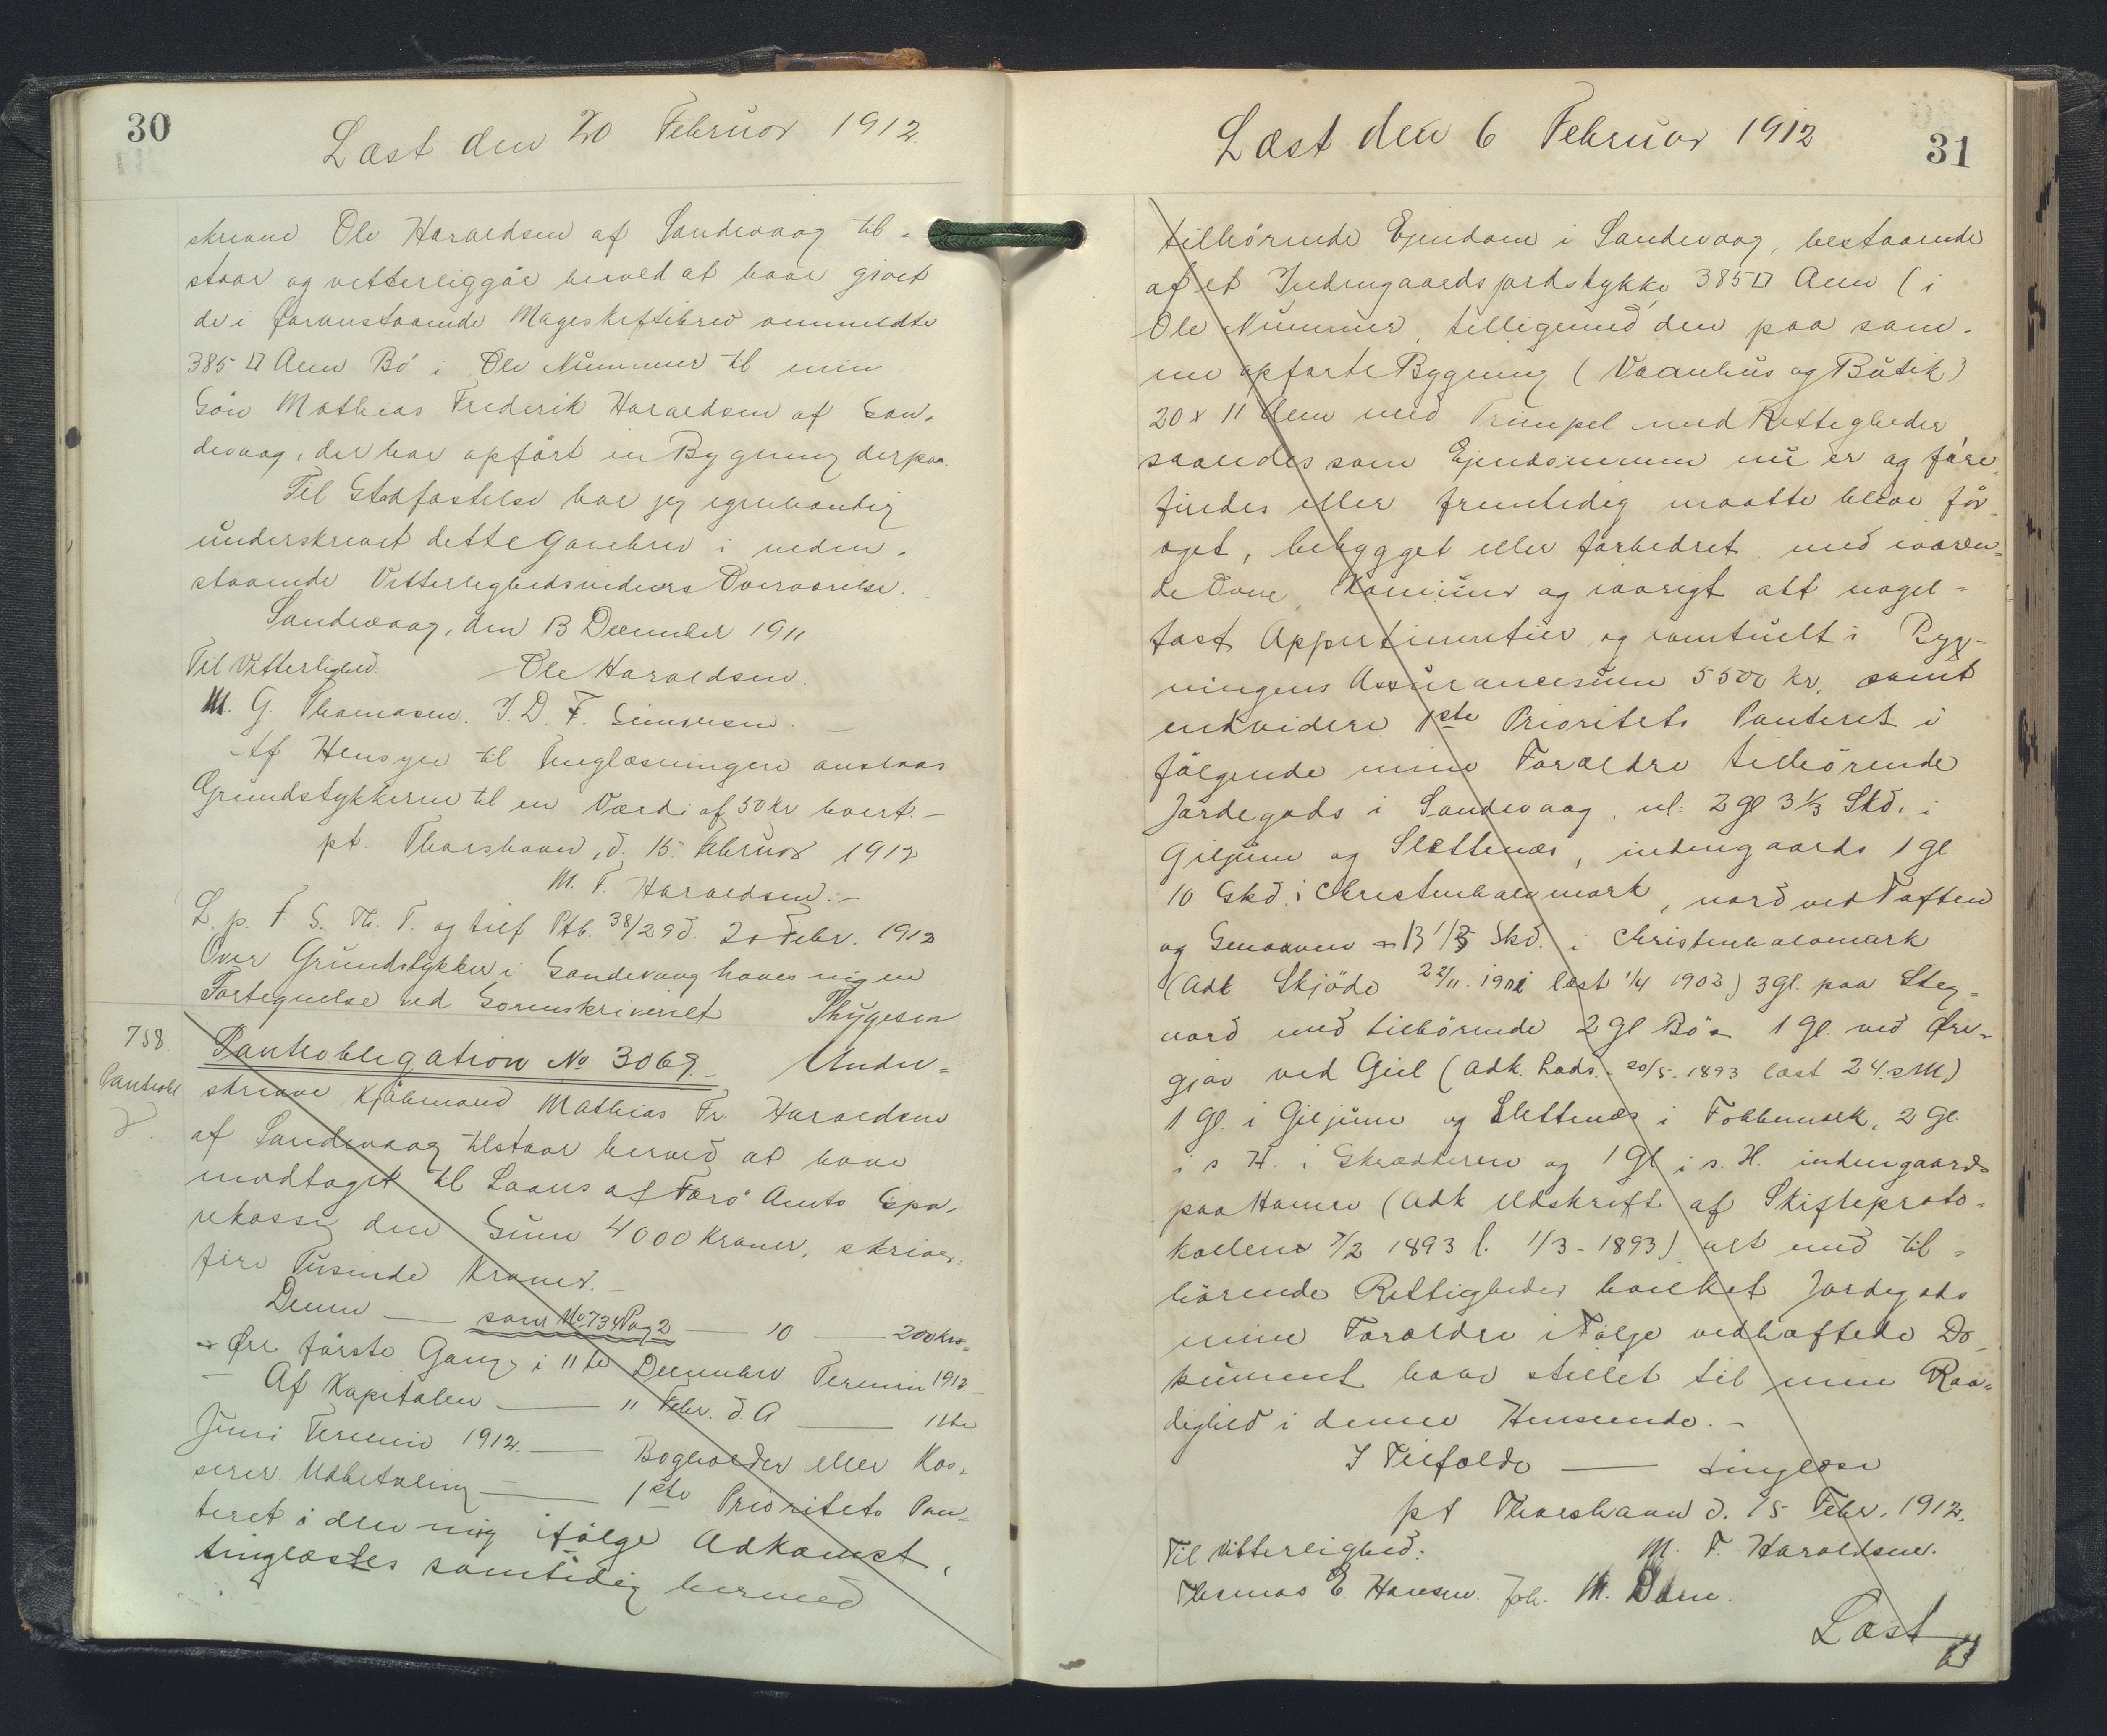 30
Læst den 20 Februar 1912.
skrevne Ole Haraldsen af Sandevaag til-
staar og vitterliggør herved at have givet
de i foranstaaende Mageskiftebrev ommeldte
385 □ Alen Bø i Ole Nummer til min
Søn Mathias Frederik Haraldsen af San-
devaag, der har opført en Bygning derpaa.
Til Stadfæstelse har jeg egenhændig
underskrevet dette Gavebrev i neden-
staaende Vitterlighedsvidners Overværelse.
Sandevaag, den 13 December 1911
Til Vitterlighed. Ole Haraldsen.
M. G. Thomasen. J. D. F. Simonsen.
Af Hensyn til Tinglæsningen anslaas
Grundstykkerne til en Værdi af 50 kr hvert.-
pt. Thorshavn, d. 15. Februar 1912
M. F. Haraldsen.-
L. p. F. S. Th. T. og tilf Ptb. 38/29 d. 20 Febr. 1912
Over Grundstykker i Sandevaag haves ingen
Fortegnelse ved Sorenskriveriet Thygesen
758. Panteobligation No 3069. Under-
Panteobl skrevne Kjøbmand Mathias Fr. Haraldsen
af Sandevaag tilstaar herved at have
modtaget til Laans af Færø Amts Spa-
rekasse den Sum 4000 Kroner, skriver
fire Tusinde Kroner.-
Denne — som No 734 Pag 2 — 10 — 200 Kro-
Øre første Gang i 11te December Termin 1912
Af Kapitalen — 11 Febr. d. A — 11te
Juni Termin 1912. — Bogholder eller Kas-
serer. Udbetaling — 1ste Prioritets Pan-
teret i den mig ifølge Adkomst,
tinglæstes samtidig hermed
Læst den 6 Februar 1912
31
tilhørende Ejendom i Sandevaag, bestaaende
af et Indengaardsjordstykke 385 □ Alen (i
Ole Nummer, tilligemed den paa sam-
me opførte Bygning (Vaanhus og Butik)
20 x 11 Alen med Trempel med Rettigheder
saaledes som Ejendommen nu er og fore-
findes eller fremtidig maatte blive for-
øget, bebygget eller forbedret, med iværen-
de Ovne, Komfurer og iøvrigt alt nagel-
fast Appertinentier og eventuelt i Byg-
ningens Assurancesum 5500 kr, samt
endvidere 1ste Prioritets Panteret i
følgende mine Forældre tilhørende
Jordegods i Sandevaag, nl: 2 Gl 3 1/3 Skd. i
Giljum og Slettenæs, indengaards 1 gl
10 Skd. i Christenhalvmark, nord ved Toften
og 13 1/3 Skd. i Christenhalvmark
(Adk Skjøde 22/11. 1901 læst 1/4 1902) 3 Gl. paa Steg-
nord med tilhørende 2 gl Bø 1 Gl. ved Øre-
gjov ved Giel (Adk. Lods. 20/5. 1893 læst 24. s M.)
1 Gl. i Giljum og Slettenæs i Tobbemark, 2 Gl.
i s H. i Skrædderen og 1 Gl i s. H. indengaards
paa Hamre (Adk Udskrift af Skifteproto-
kollen 7/2 1893 l. 1/3 - 1893) alt med til-
hørende Rettigheder hvilket Jordegods
mine Forældre i Følge vedhæftede Do-
kument have stillet til min Raa-
dighed i denne Henseende.-
I Tilfælde — tinglæse
pt Thorshavn d. 15 Febr. 1912.
Til Vitterlighed: M. F. Haraldsen.
Thomas E Hansen. Joh. M. Dam.
Læst